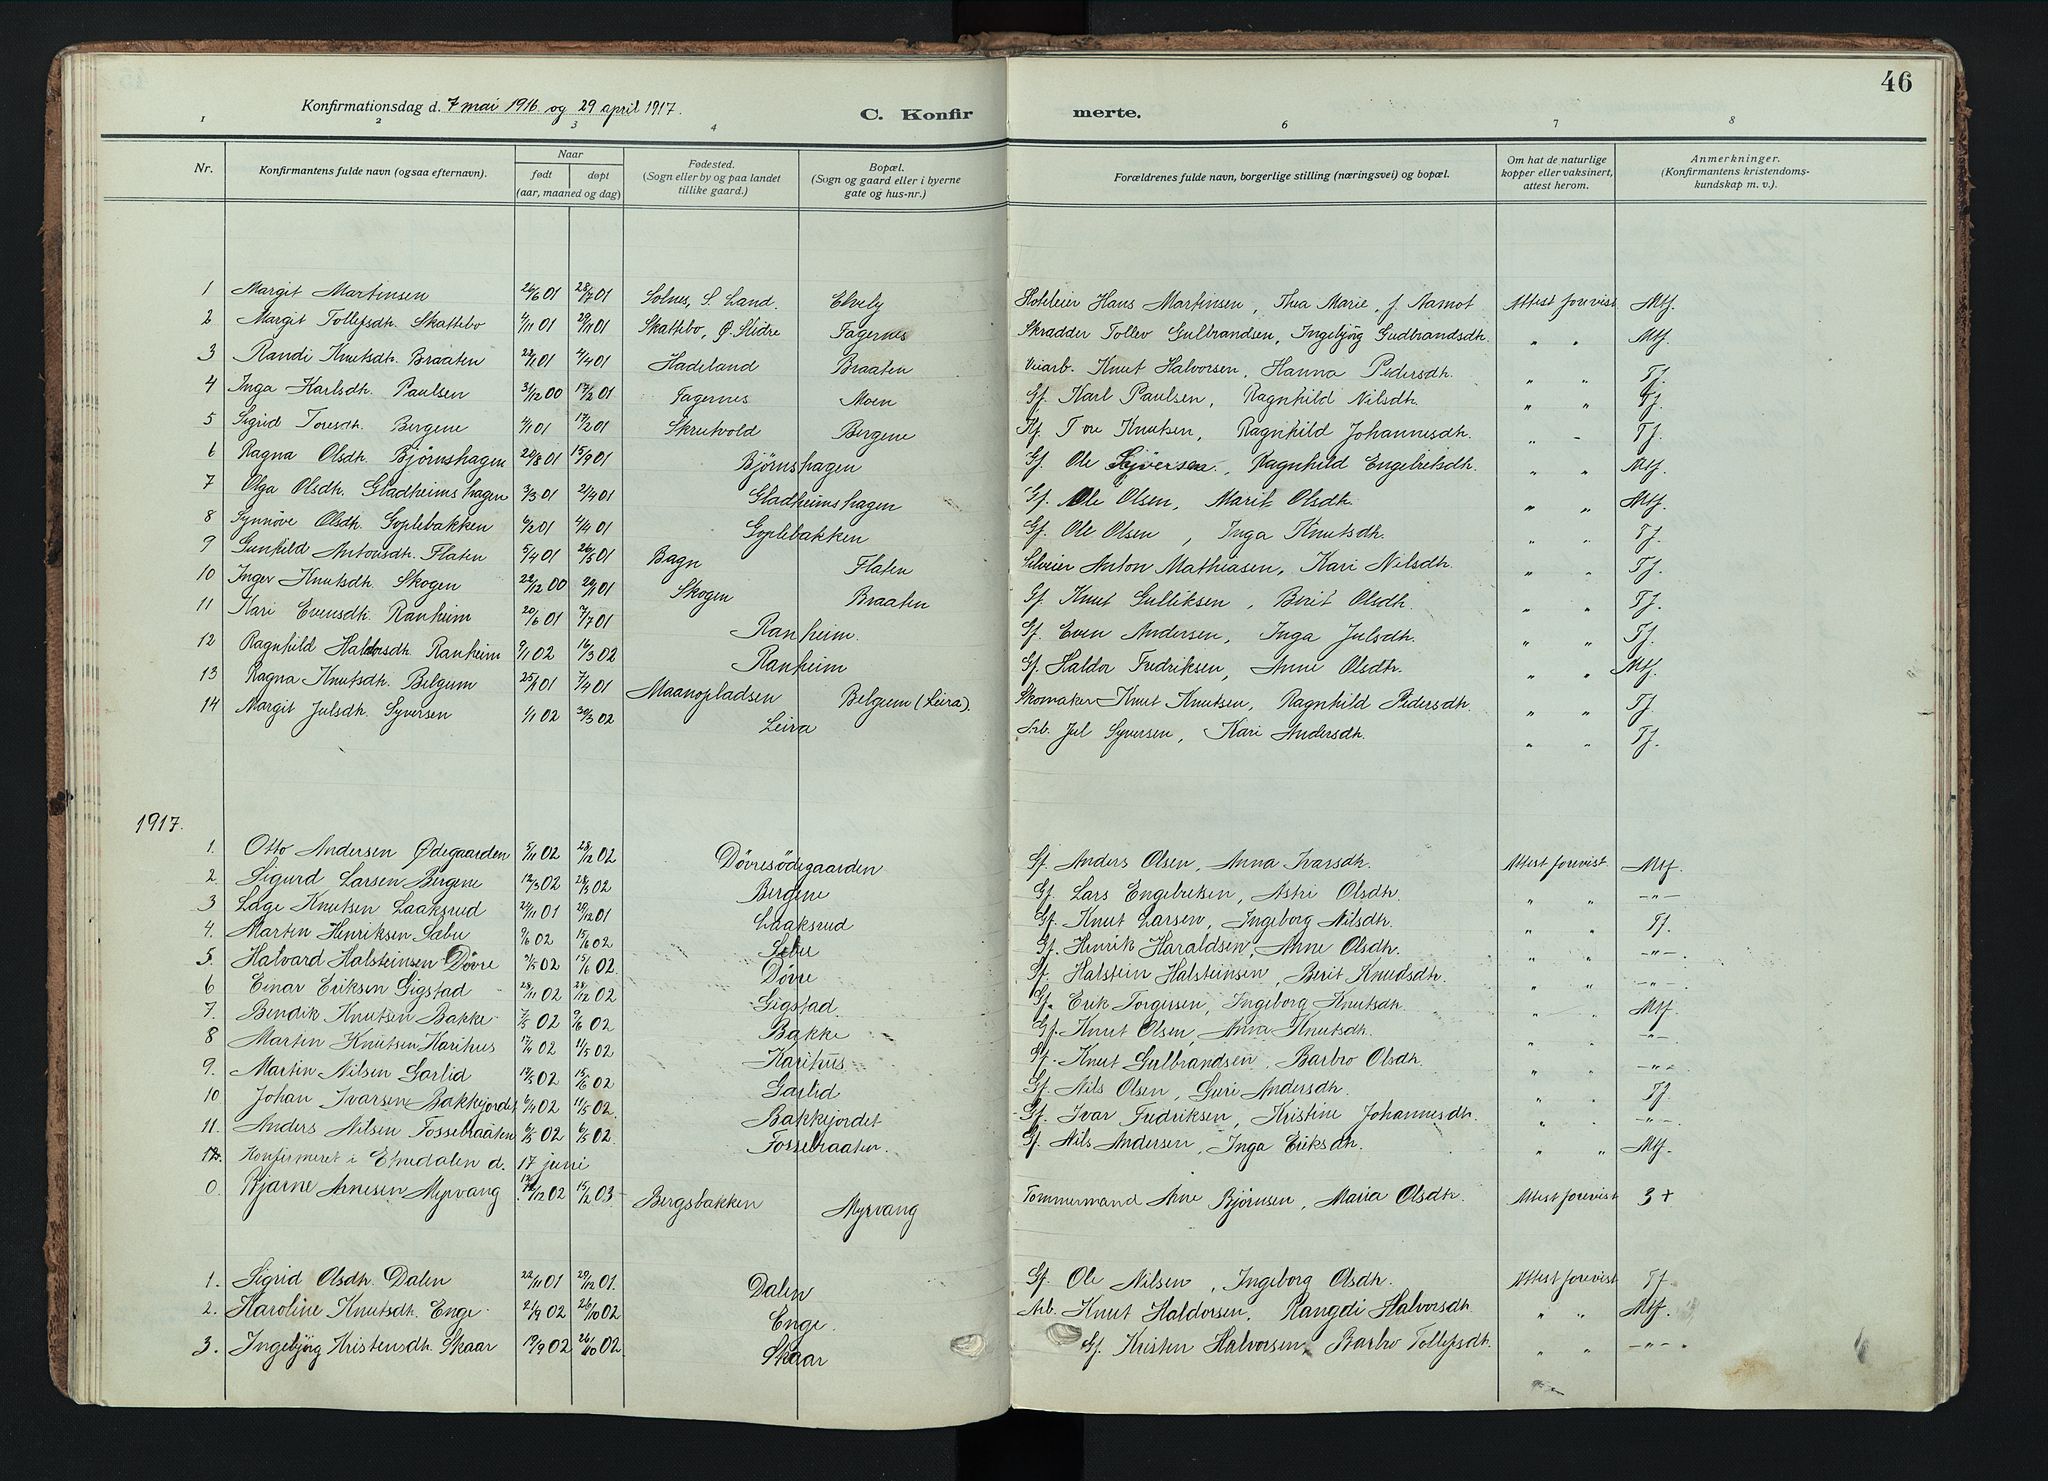 46
Konfirmationsdag d. 7 mai 1916 og 29 april 1917. C. Konfir merte.
1 2 3 4 6 7 8
Nr. Konfirmantens fulde navn (ogsaa efternavn). Naar født døpt (aar, maaned og dag) Fødested. (Sogn eller by og paa landet tillike gaard.) Bopæl. (Sogn og gaard eller i byerne gate og hus-nr.) Forældrenes fulde navn, borgerlige stilling (næringsvei) og bopæl. Om hat de naturlige kopper eller vaksinert, attest herom. Anmerkninger. (Konfirmantens kristendoms-kundskap m. v.).
1 Margit Martinsen 26/6 01 28/7 01 Solnes, S. Land. Elvely Hoteleier Hans Martinsen, Thea Marie, f. Aamot Attest forevist Mtf.
2 Margit Tollefsdh. Skattebo 4/11 01 29/11 01 Skattebo, Ø. Slidre Fagernes Skrædder Tollev Gulbrandsen, Ingebjørg Gudbrandsdh. " " Mtf.
3 Randi Knutsdh. Braaten 22/1 01 4/4 01 Hadeland Braaten Veiarb. Knut Halvorsen, Hanna Pedersdh. " " Tf.
4 Inga Karlsdh. Paulsen 31/12 00 17/2 01 Fagernes Moen Gf. Karl Paulsen, Ragnhild Nilsdh. " " Tf.
5 Sigrid Toresdh. Bergene 4/1 01 17/2 01 Skrutvold Bergene Kf. Tore Knutsen, Ragnhild Johannesdh. " " Tf.
6 Ragna Olsdh. Bjørnshagen 20/8 01 15/9 01 Bjørnshagen Gf. Ole Syversen, Ragnhild Engebretsdh. " " Mtf.
7 Olga Olsdh. Gladheimshagen 3/3 01 21/4 01 Gladheimshagen Gf. Ole Olsen, Marit Olsdh. " " Mtf.
8 Synnøve Olsdh. Goplebakken 6/2 01 4/4 01 Goplebakken Gf. Ole Olsen, Inga Knutsdh. " " Tf.
9 Gunhild Antonsdh. Flaten 5/4 01 26/5 01 Bagn Flaten Selveier Anton Mathiasen, Kari Nilsdh. " " Tf.
10 Inger Knutsdh. Skogen 22/12 00 20/1 01 Skogen Braaten Gf. Knut Gulliksen, Berit Olsdh. " " Tf.
11 Kari Evensdh. Ranheim 20/6 01 7/7 01 Ranheim. Gf. Even Andersen, Inga Julsdh. " " Tf.
12 Ragnhild Haldorsdh. Ranheim 9/1 02 16/3 02 Ranheim Gf. Haldor Fredriksen, Anne Olsdh. " " Mtf.
13 Ragna Knutsdh. Belgum 25/1 01 7/4 01 Maanopladsen Belgum (Leira). Skomaker Knut Knutsen, Ragnhild Pedersdh. " " Tf.
14 Margit Julsdh. Syversen 1/1 02 30/3 02 Leira Arb. Jul Syversen, Kari Andersdh. " " Tf.
1917.
1. Otto Andersen Ødegaarden 5/11 02 28/12 02 Døvresødegaarden Gf. Anders Olsen, Anna Ivarsdh. Attest forevist Mtf.
2. Sigurd Larsen Bergene 12/3 02 28/3 02 Bergene Gf. Lars Engebretsen, Astri Olsdh " " -"-
3 Lage Knutsen Laaksrud 24/11 01 29/12 01 Laaksrud Gf. Knut Larsen, Ingeborg Nilsdh. " " Tf.
4. Martin Henriksen Sæbu 9/6 02 15/6 02. Sæbu Gf. Henrik Haraldsen, Anne Olsdh. " " -"-.
5. Halvard Halsteinsen Døvre 3/5 02 15/6 02. Døvre Gf. Halstein Halsteinsen, Berit Knudsdh. " " -"-.
6 Einar Eriksen Gigstad 28/11 02 28/12 02 Gigstad. Gf. Erik Torgersen, Ingeborg Knutsdh. " " Mtf.
7. Bendik Knutsen Bakke. 7/5 02 9/6 02 Bakke Gf. Knut Olsen, Anna Knutsdh. " " -"-
8 Martin Knutsen Karihus 17/4 02 11/5 02. Karihus Gf. Knut Gulbrandsen, Barbro Olsdh. " " -"-.
9. Martin Nilsen Garlid 19/5 02 15/6 02. Garlid Gf. Nils Olsen, Guri Andersdh. " " Tf.
10 Johan Ivarsen Bakkejordet 6/4 02 11/5 02. Bakkejordet Gf. Ivar Fredriksen, Kristine Johannesdh. " " -"-.
11. Anders Nilsen Fossebraaten 6/5 02 6/5 02. Fossebraaten. Gf. Nils Andersen, Inga Eriksdh. " " Mtf.
12. Konfirmeret i Etnedalen d. 17 juni
0. Bjarne Arnesen Myrvang 12/12 02 15/2 03 Bergsbakken Myrvang Tømmermand Arne Bjørnsen, Maria Olsdh. Attest forevist 3+
1. Sigrid Olsdh. Dalen 22/11 01 29/12 01. Dalen Gf. Ole Nilsen, Ingeborg Olsdh. Attest forevist Tf
2. Karoline Knutsdh. Enge. 21/9 02 26/10 02 Enge. Arb. Knut Haldorsen, Rangdi Halvorsdh. " " Mtf.
3. Ingebjørg Kristensdh. Skaar 19/9 02 26/10 02. Skaar Gf. Kristen Halvorsen, Barbro Tollefsdh. " " -"-.